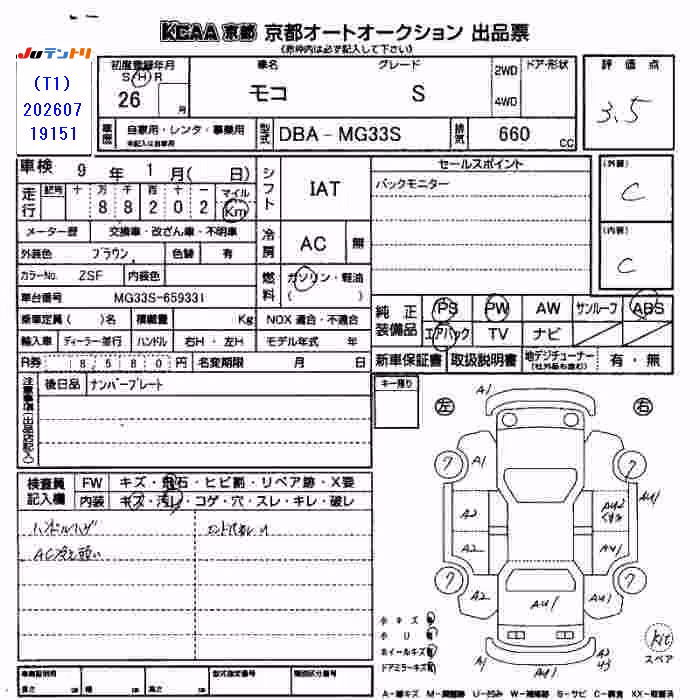 KCAA 京都 京都オートオークション 出品票
(赤枠内は必ず記入して下さい)
JUテントリ
(T1)
202607
19151
初度登録年月
S H R
26 月
車名
モコ
グレード
S
2WD
4WD
ドア・形状
評価点
3.5
車歴
自家用・レンタ・事業用
未記入は自家用
型式
DBA-MG33S
排気
660 CC
車検 9 年 1 月 ( 日)
走行
記号 十 万 千 百 十 一
8 8 2 0 2
マイル
Km
シフト
IAT
セールスポイント
バックモニター
(外装)
C
(内装)
C
メーター歴 交換車・改ざん車・不明車
外装色 ブラウン 色替 有
冷房
AC 無
カラーNo. ZSF 内装色
燃料
ガソリン・軽油
( )
車台番号 MG33S-659331
乗車定員 ( )名 積載量 Kg NOX 適合・不適合
輸入車 ディーラー・並行 ハンドル 右H・左H モデル年式 年
R券 8580円 名変期限 月 日
純正装備品
PS PW AW サンルーフ ABS
エアバック TV ナビ
新車保証書 取扱説明書 地デジチューナー 有・無
(社外品も含む)
注意事項(出品店記入)
後日品 ナンバープレート
キー預り
左
右
検査員記入欄
FW キズ・飛石・ヒビ割・リペア跡・X要
内装 キズ・汚れ・コゲ・穴・スレ・キレ・破レ
ハンドルハゲ
A1
A1
7
7
A2
A2
A2
AU1
A1
7
7
AU1
AU1
A1
小キズ
小U
ホイールキズ
ドアミラーキズ
kit
スペア
車両証明用
長さ cm 幅 cm 高さ cm
型式指定番号
類別区分番号